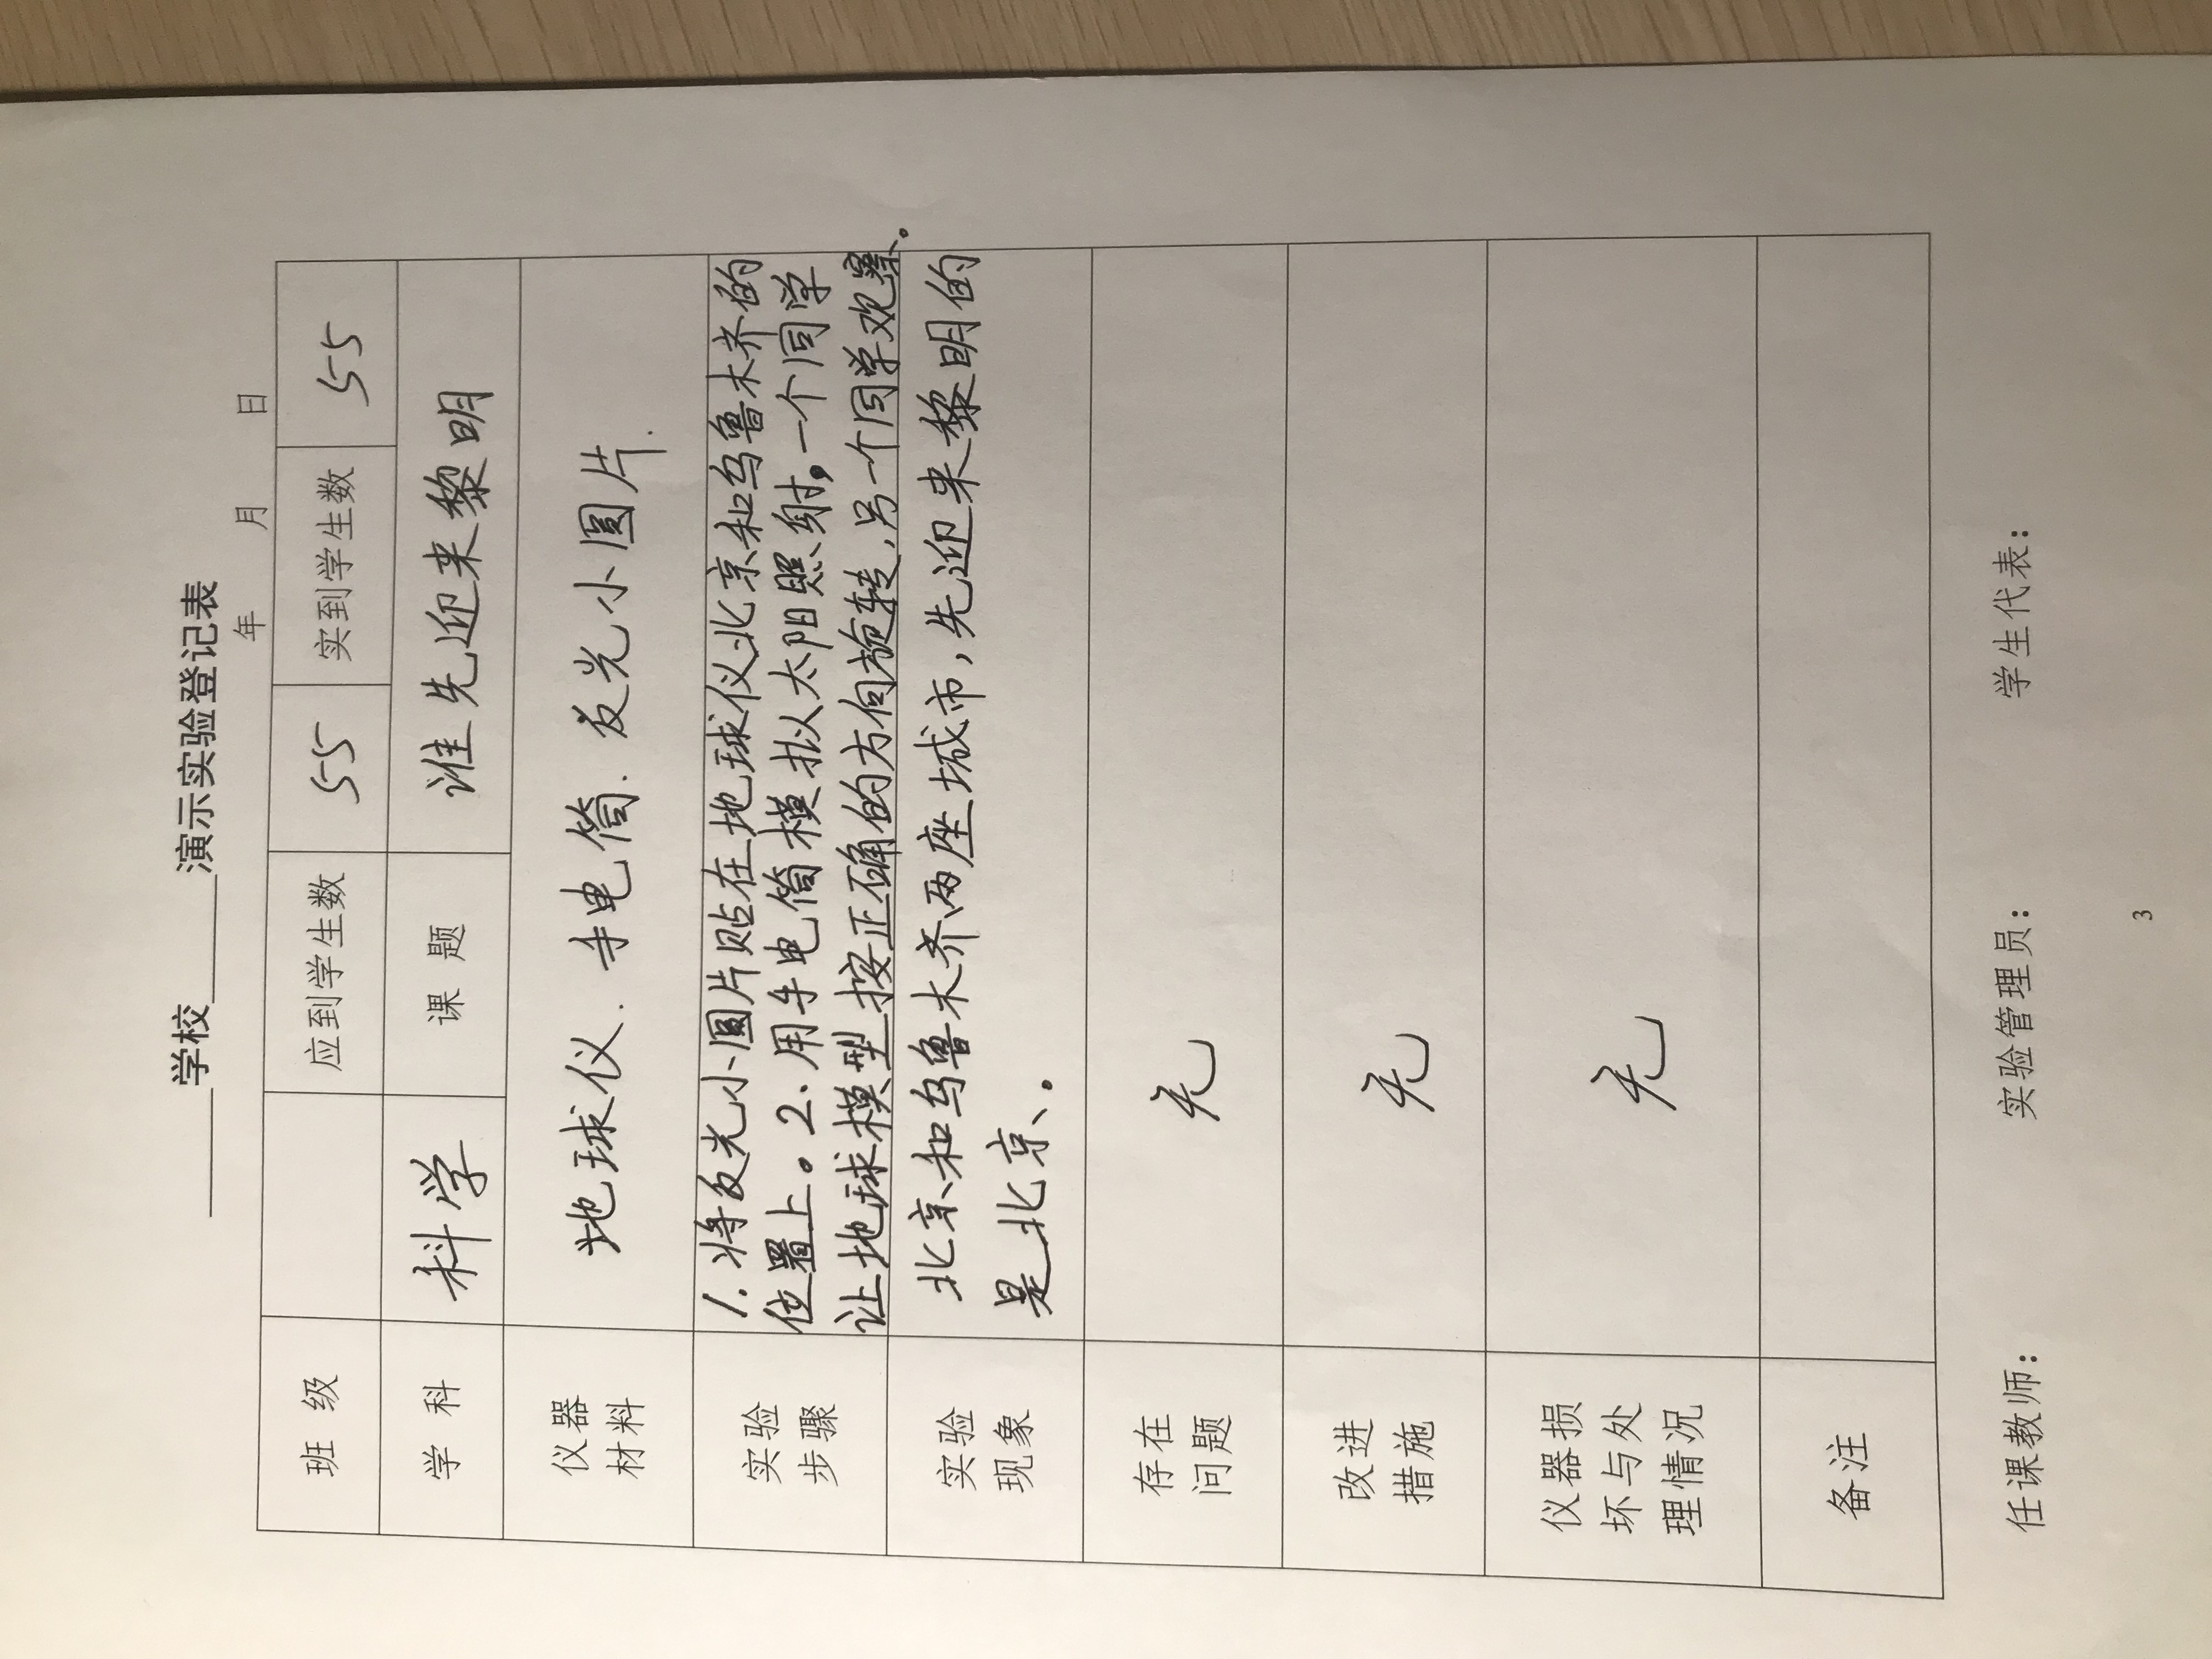 ______学校______演示实验登记表
年 月 日
班 级 应到学生数 55 实到学生数 55
学 科 科学 课 题 谁先迎来黎明
仪器
材料
地球仪. 手电筒. 反光小圆片.
实验
步骤
1. 将反光小圆片贴在地球仪北京和乌鲁木齐的
位置上。2、用手电筒模拟太阳照射,一个同学
让地球模型按正确的方向旋转,另一个同学观察。
实验
现象
北京和乌鲁木齐两座城市,先迎来黎明的
是北京。
存在
问题
无
改进
措施
无
仪器损
坏与处
理情况
无
备注
任课教师: 实验管理员: 学生代表:
3